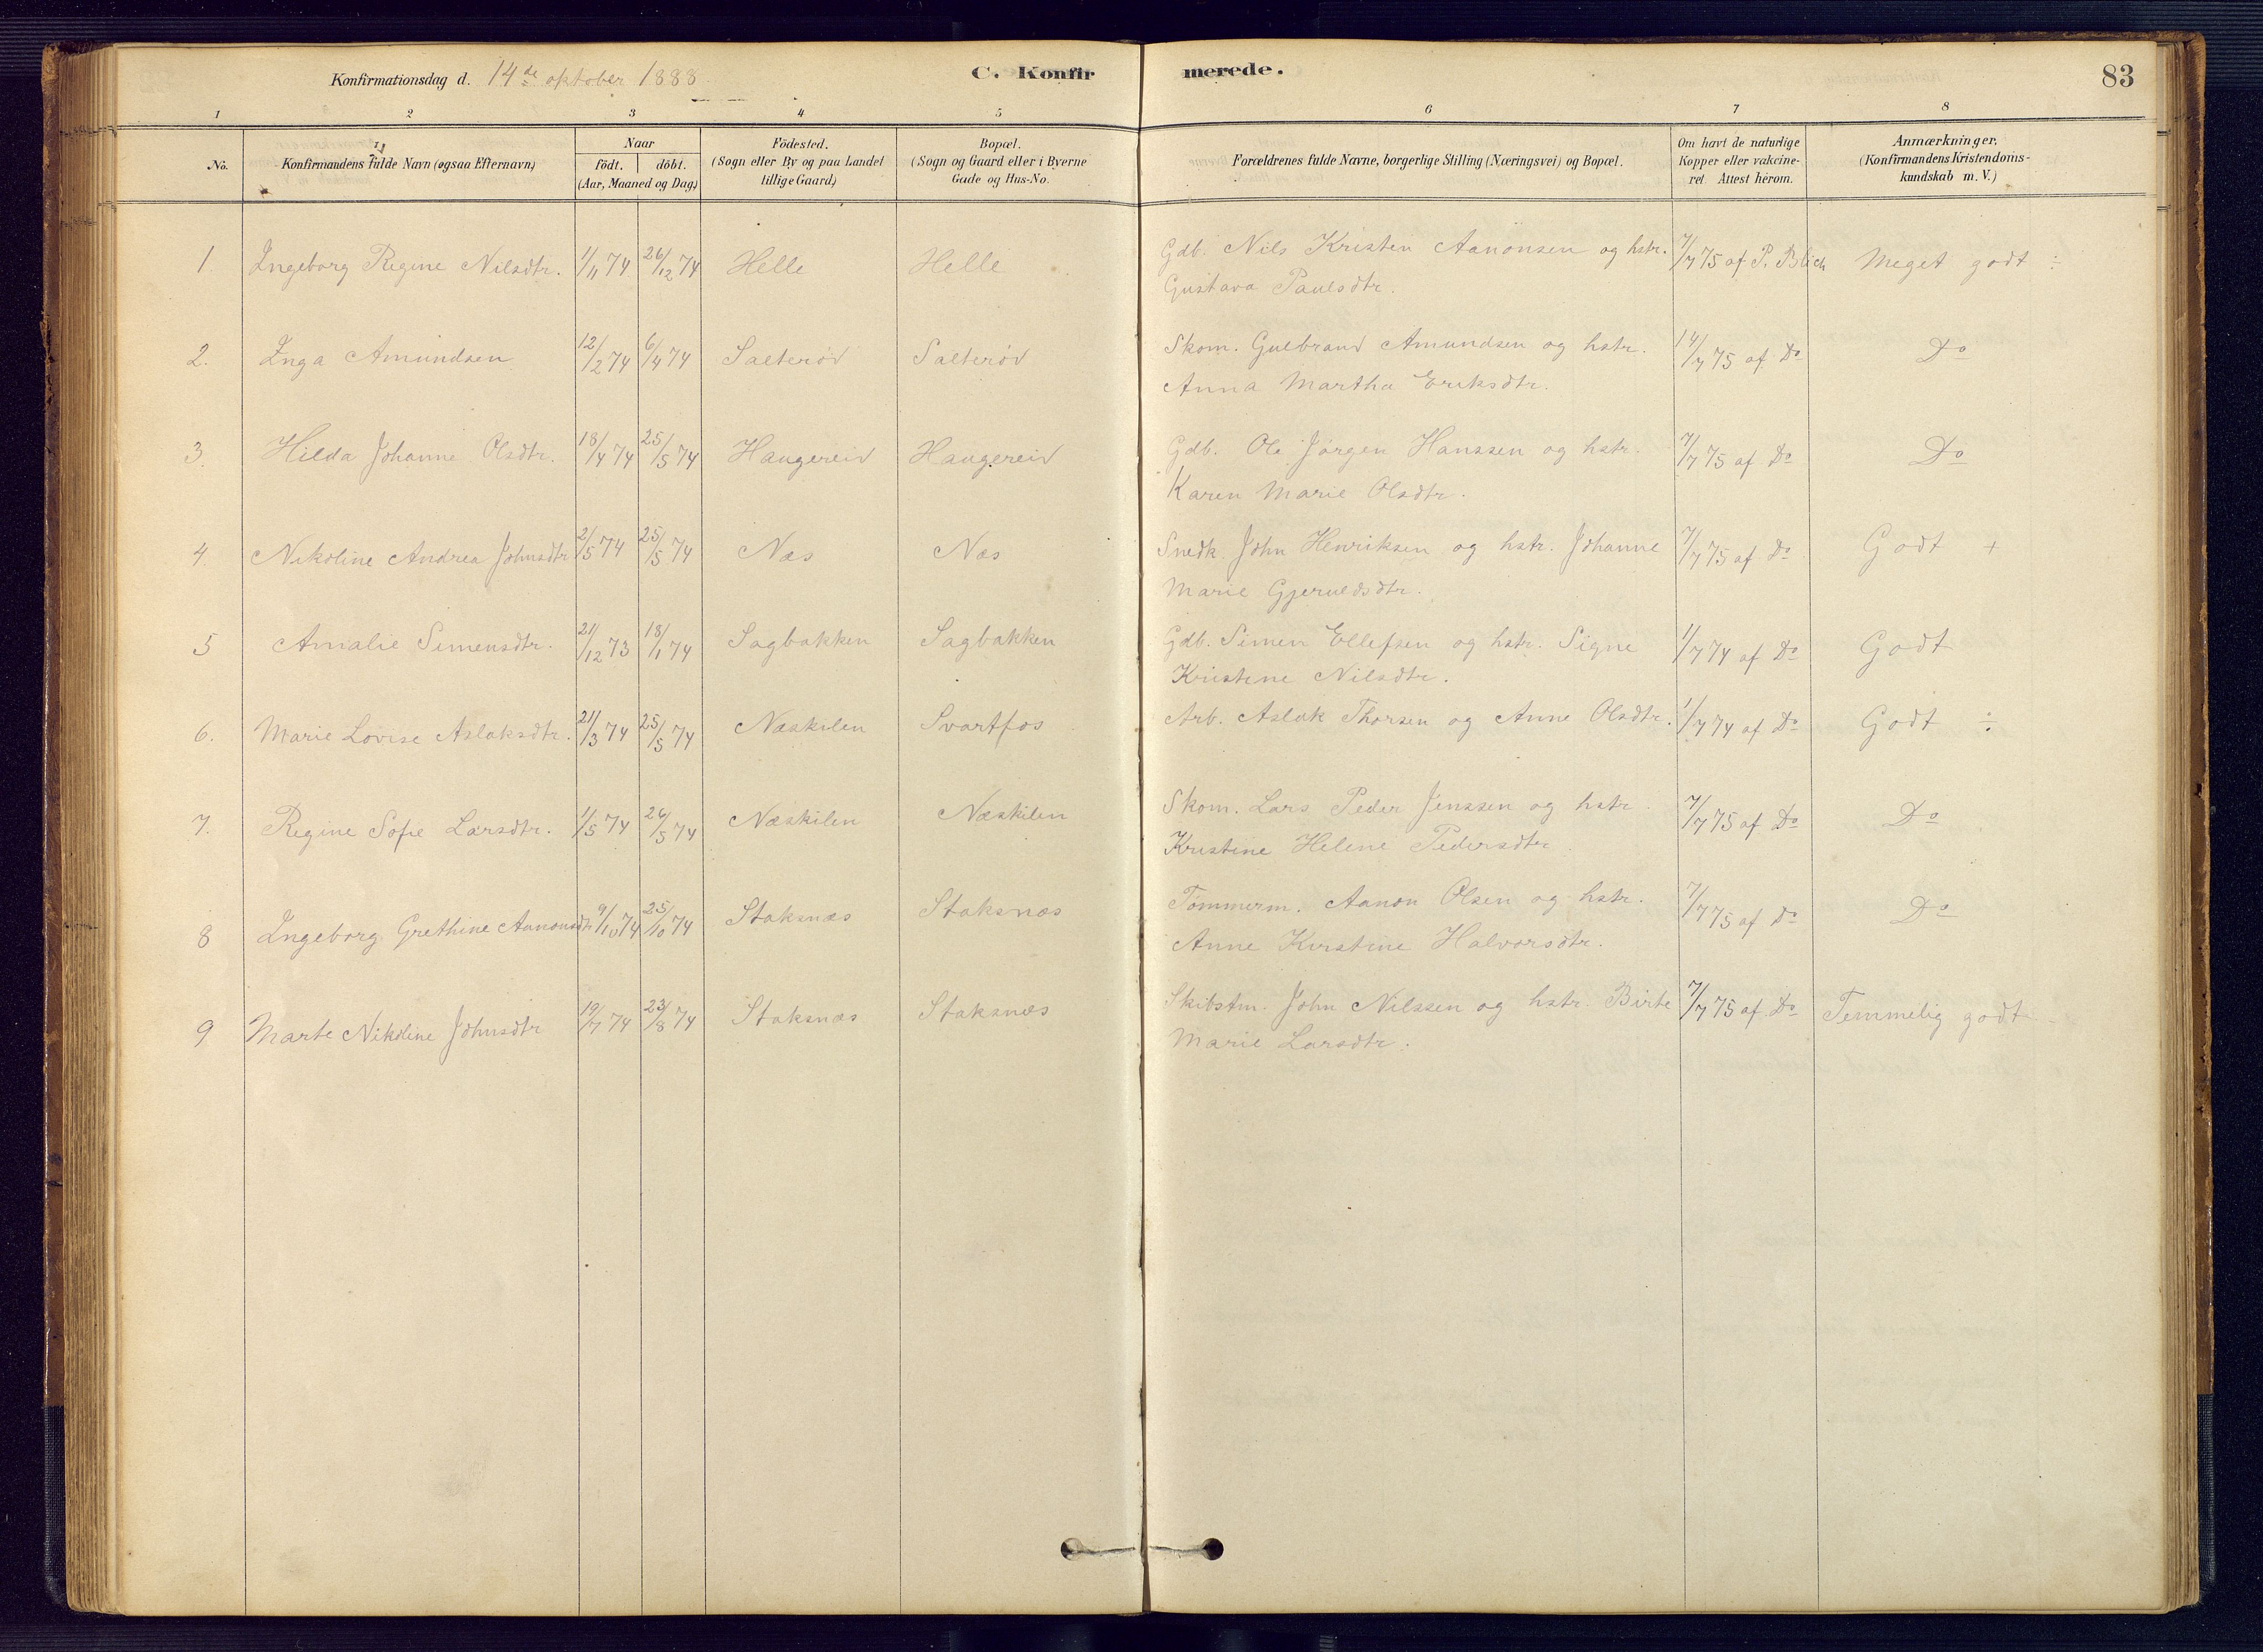 Konfirmationsdag d. 14de oktober 1888
C. Konfirmerede.
83
1 2 3 4 5 6 7 8
No.
Konfirmandens fulde Navn (ogsaa Efternavn)
Naar
födt. döbt.
(Aar, Maaned og Dag)
Födested.
(Sogn eller By og paa Landet
tillige Gaard)
Bopæl.
(Sogn og Gaard eller i Byerne
Gade og Hus-No.
Forældrenes fulde Navne, borgerlige Stilling (Næringsvei) og Bopæl.
Om havt de naturlige
Kopper eller vakcine-
ret. Attest herom.
Anmærkninger.
(Konfirmandens Kristendoms-
kundskab m. V.)
1. Ingeborg Regine Nilsdtr. 1/11 74 26/12 74 Helle Helle Gdb. Nils Kristen Aanonsen og hstr. 7/7 75 af P. Blich Meget godt ÷
Gustava Paulsdtr.
2. Inga Amundsen 12/2 74 6/4 74 Salterød Salterød Skom. Gulbrand Amundsen og hstr. 14/7 75 af Do Do
Anna Martha Eriksdtr.
3. Hilda Johanne Olsdtr. 18/4 74 25/5 74 Haugereid Haugereid Gdb. Ole Jørgen Hanssen og hstr. 7/7 75 af Do Do
Karen Marie Olsdtr.
4. Nikoline Andrea Johnsdtr 2/5 74 25/5 74 Næs Næs Snedk. John Henriksen og hstr. Johanne 7/7 75 af Do Godt +
Marie Gjeruldsdtr.
5 Amalie Simensdtr. 21/12 73 18/1 74 Sagbakken Sagbakken Gdb. Simen Ellefsen og hstr. Signe 1/7 74 af Do Godt
Kristine Nilsdtr.
6. Marie Lovise Aslaksdtr. 21/3 74 25/5 74 Næskilen Svartfos Arb. Aslak Thorsen og Anne Olsdtr. 1/7 74 af Do Godt ÷
7. Regine Sofie Larsdtr. 1/5 74 26/5 74 Næskilen Næskilen Skom. Lars Peder Jenssen og hstr. 7/7 75 af Do Do
Kristine Helene Pedersdtr
8 Ingeborg Grethine Aanonsdtr 9/10 74 25/10 74 Staksnæs Staksnæs Tømmerm. Aanon Olsen og hstr. 7/7 75 af Do Do
Anne Kirstine Halvorsdtr.
9 Marte Nikoline Johnsdtr 19/7 74 23/8 74 Staksnæs Staksnæs Skibstm. John Nilssen og hstr. Birte 7/7 75 af Do Temmelig godt
Marie Larsdtr.